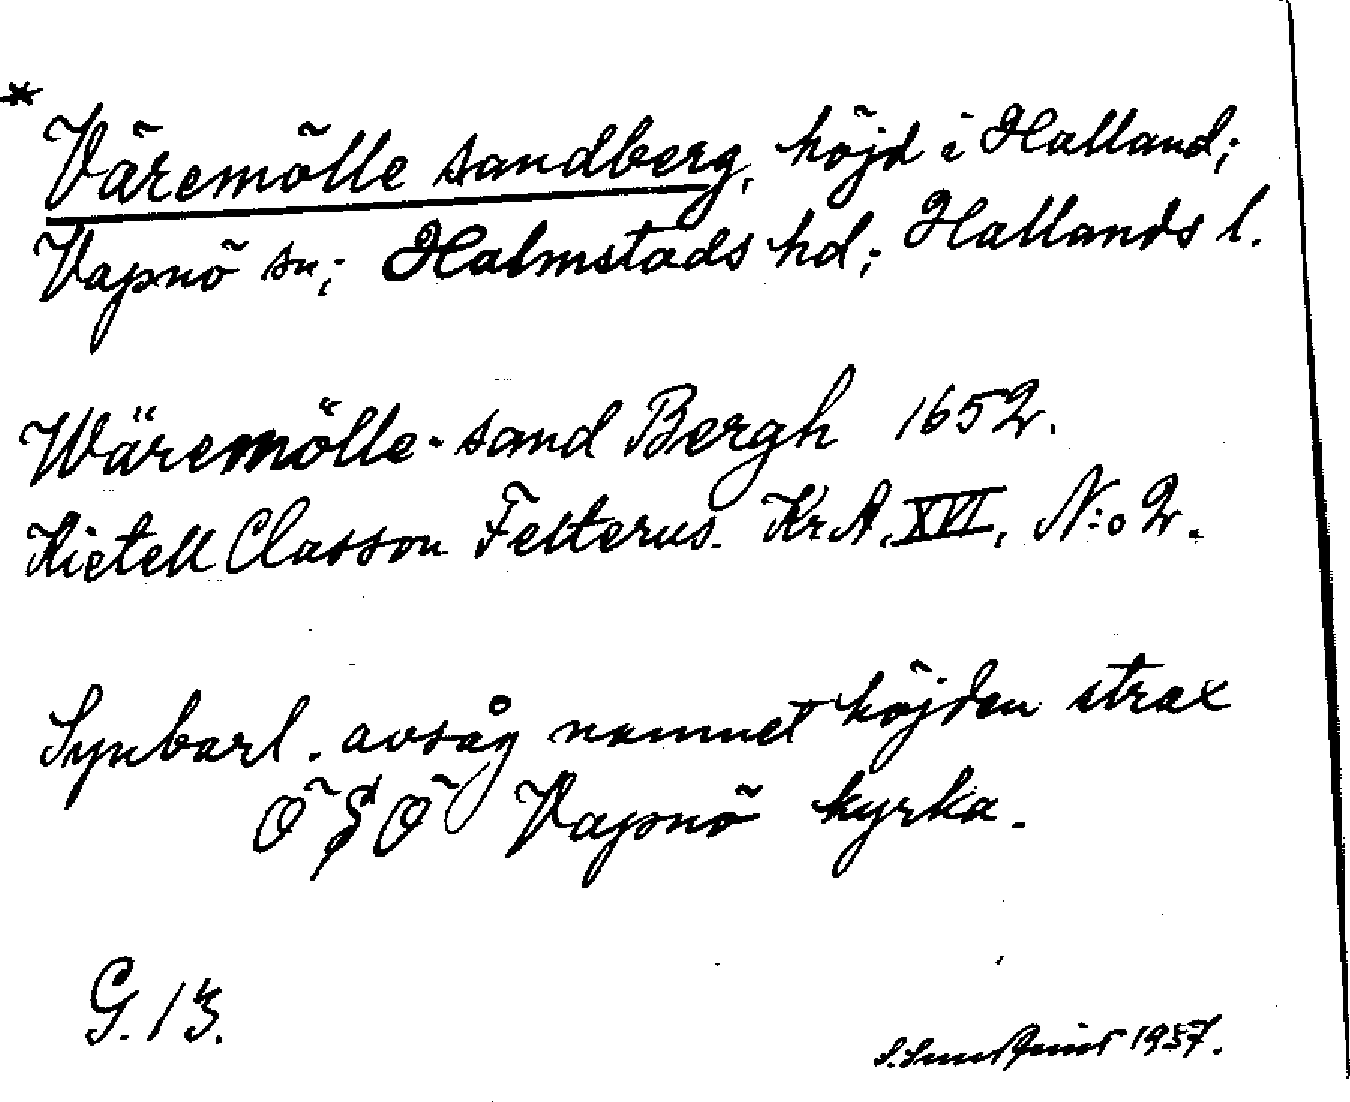 * Väremölle sandberg, höjd i Halland;
Vapnö sn; Halmstads hd; Hallands l.
Wäremölle-sand Bergh 1652.
Kietell Classon Felterus. KrA. XVI, N:o 2.
Synbarl. avsåg namnet höjden strax
ÖSÖ Vapnö kyrka.
G. 13.
1937.